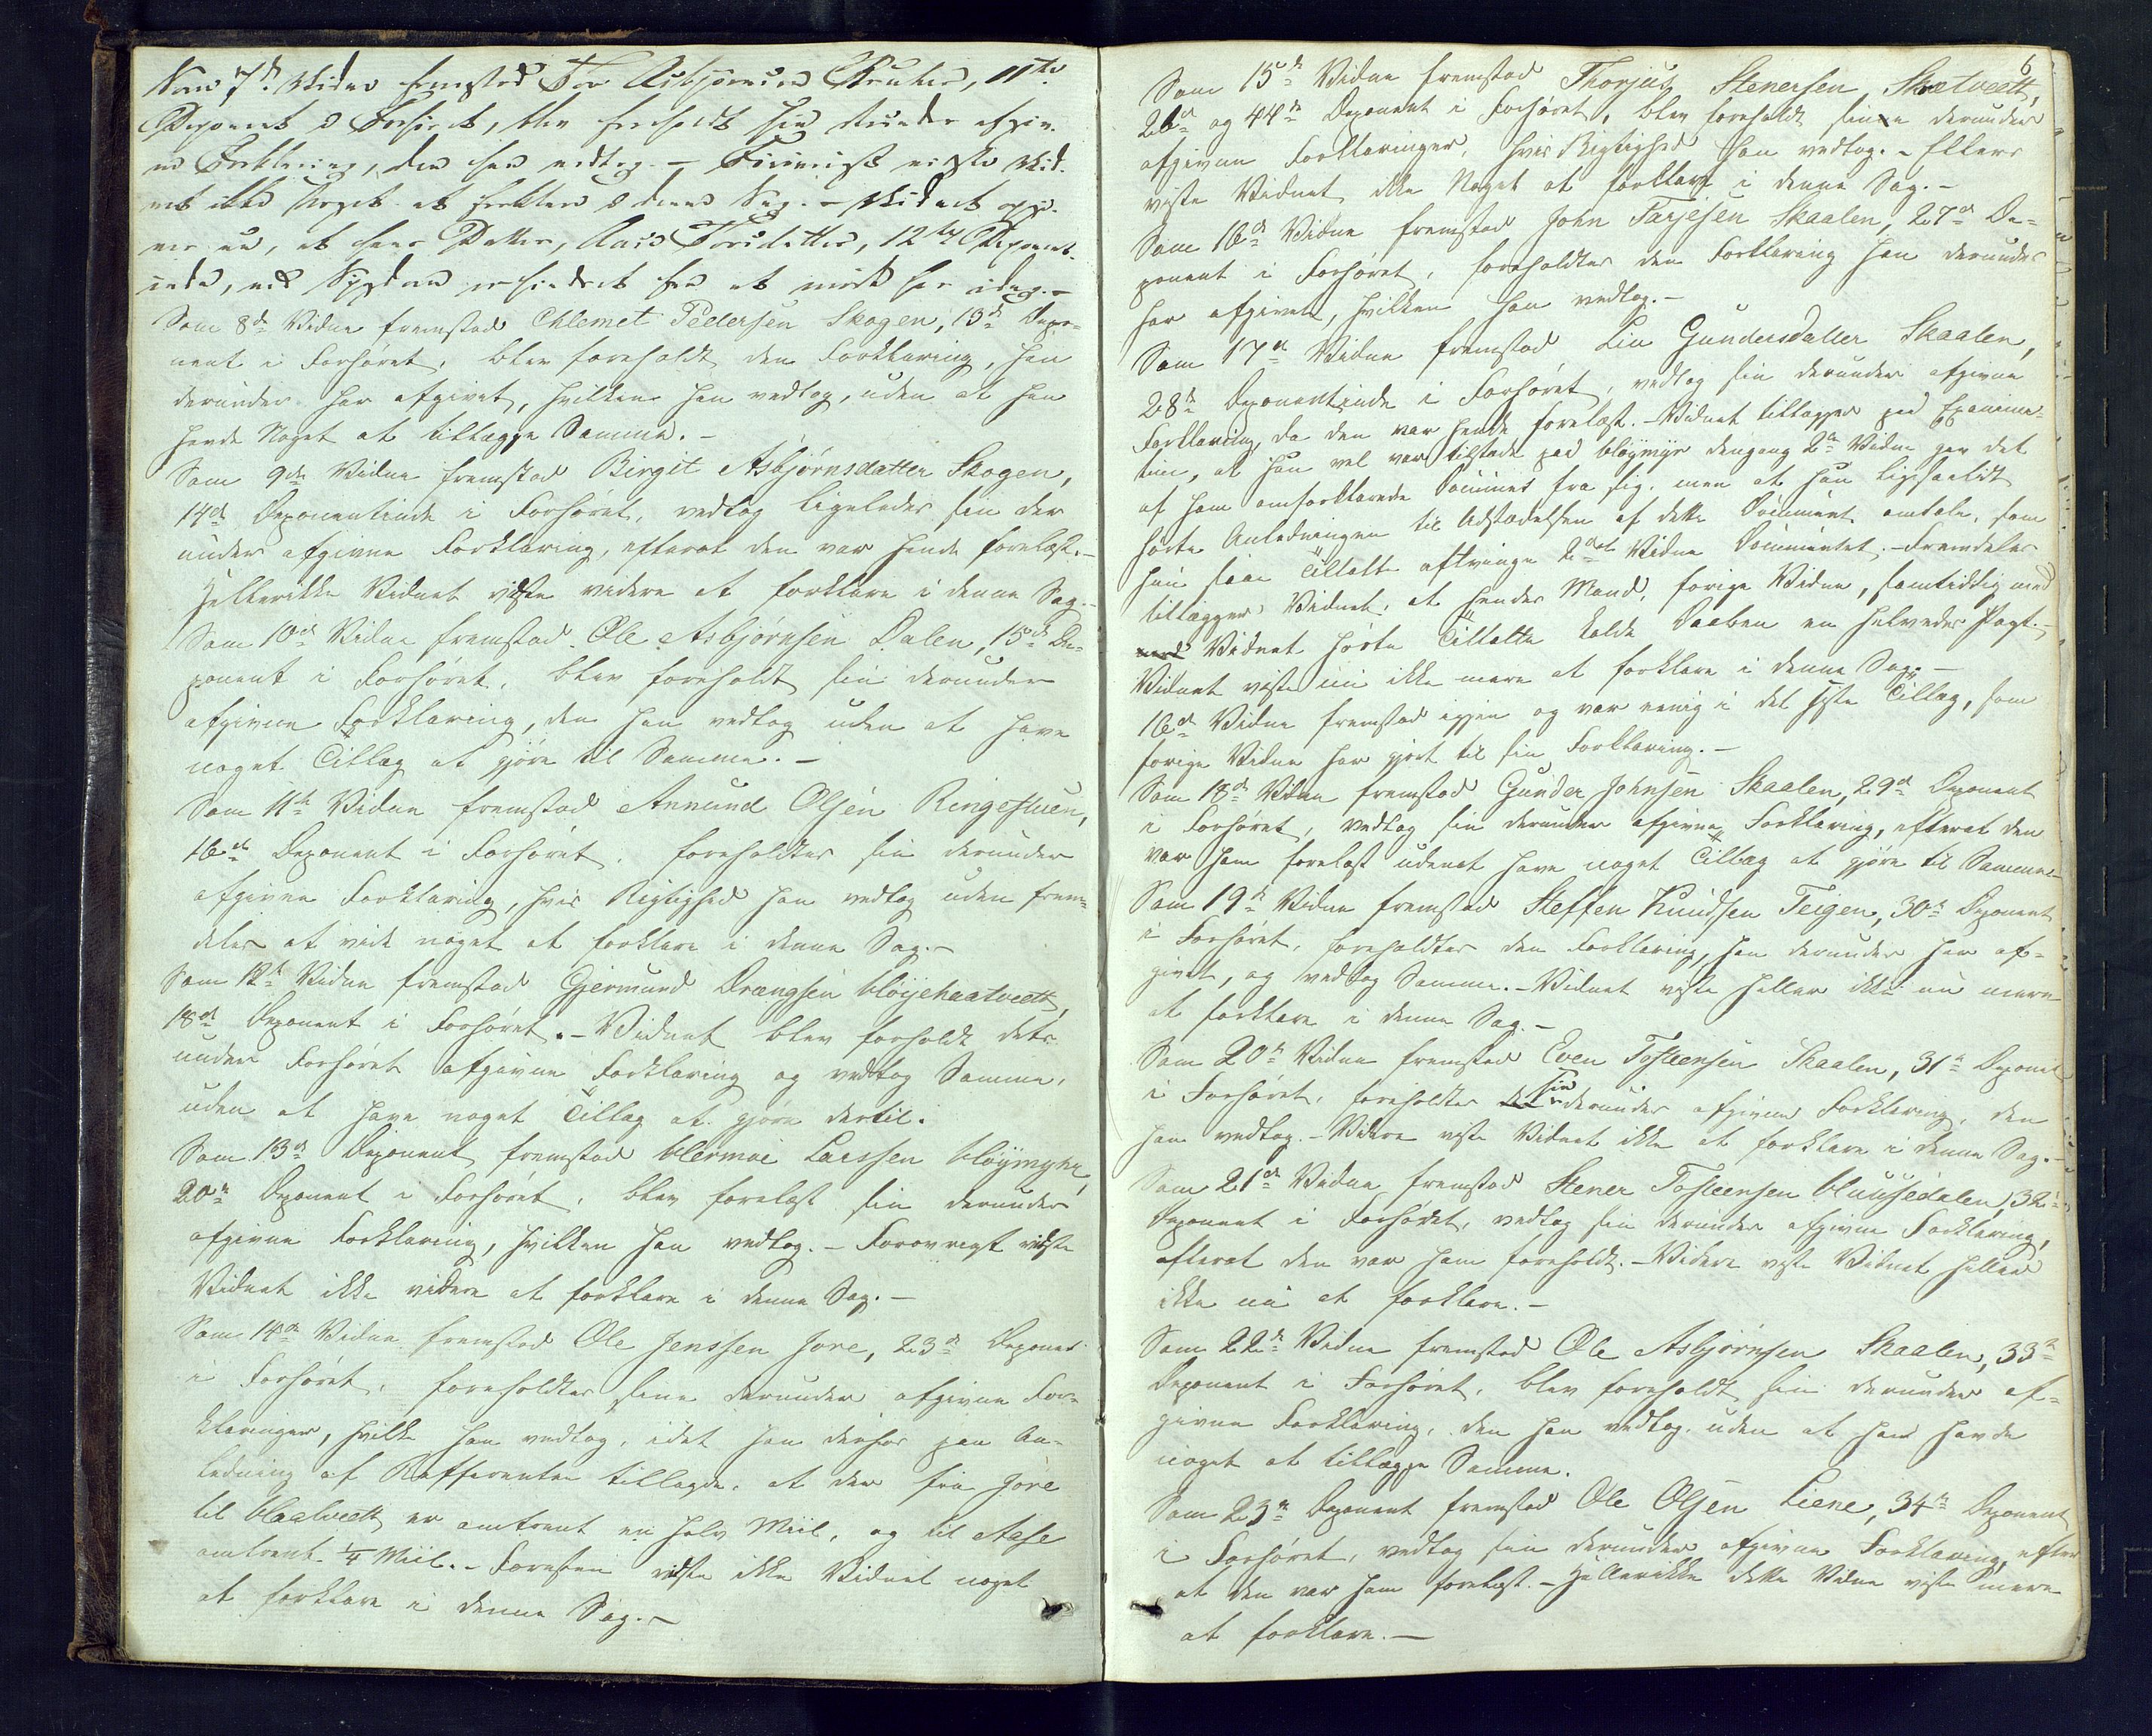 Som 7de Vidne fremstod Tor Asbjørnsen Bruker, 11te
Deponent i Forhøret, blev foreholdt sin derunder afgiv-
ne Forklaring, den han vedtog. – Forøvrigt vidste Vid-
net ikke Noget at forklare i denne Sag. – Vidnet opgi-
ver nu, at hans Datter, Aase Torsdatter, 12te Deponent-
inde, ved Sygdom er hindret fra at møde her idag. –
Som 8de Vidne fremstod Chlemet Pedersen Skogen, 13de Depo-
nent i Forhøret, blev foreholdt den Forklaring, han
derunder har afgivet, hvilken han vedtog, uden at han
havde Noget at tillægge Samme. –
Som 9de Vidne fremstod Birgit Asbjørnsdatter Skogen,
14de Deponentinde i Forhøret, vedtog ligeledes sin der
under afgivne Forklaring, efterat den var hende forelæst. –
Hellerikke Vidnet vidste videre at forklare i denne Sag. –
Som 10de Vidne fremstod Ole Asbjørnsen Dalen, 15de De-
ponent i Forhøret, blev foreholdt sin derunder
afgivne Forklaring, den han vedtog uden at have
noget Tillæg at gjøre til Samme. –
Som 11te Vidne fremstod Annund Olsen Ringestuen,
16de Deponent i Forhøret, foreholdtes sin derunder
afgivne Forklaring, hvis Rigtighed han vedtog uden frem-
deles at vide noget at forklare i denne Sag. –
Som 12te Vidne fremstod Gjermund Drængsen Høgehaatveett,
18de Deponent i Forhøret. – Vidnet blev forholdt dets
under Forhøret afgivne Forklaring og vedtog Samme,
uden at have noget Tillæg at gjøre dertil.
Som 13de Deponent fremstod Hermoe Larssen Høymyhr,
20de Deponent i Forhøret, blev forelæst sin derunder
afgivne Forklaring, hvilken han vedtog. – Forøvrigt vidste
Vidnet ikke videre at forklare i denne Sag. –
Som 14de Vidne fremstod Ole Jenssen Jore, 23de Deponent
i Forhøret, foreholdtes sine derunder afgivne For-
klaringer, hvilke han vedtog, idet han derhos paa An-
ledning af Referenten tillagde, at der fra Jore
til Haatveett er omtrent en halv Miil, og til Aase
omtrent 1/4 Miil. – Foresten vidste ikke Vidnet noget
at forklare i denne Sag. –
6
Som 15de Vidne fremstod Thorjus Stenersen Skatveett,
26de og 44de Deponent i Forhøret, blev foreholdt sine derunder
afgivne Forklaringer, hvis Rigtighed han vedtog. – Ellers
viste Vidnet ikke Noget at forklare i denne Sag. –
Som 16de Vidne fremstod John Tarjesen Skaalen, 27de De-
ponent i Forhøret, foreholdtes den Forklaring han derunder
har afgivet, hvilken han vedtog. –
Som 17de Vidne fremstod Liv Gundersdatter Skaalen,
28de Deponentinde i Forhøret, vedtog sin derunder afgivne
Forklaring, da den var hende forelæst. – Vidnet tillægger paa Examina-
tion, at hun vel var tilstede paa Høymyr dengang 2det Vidne gav det
af ham omforklarede Document fra sig, men at hun ligesaalidt
hørte Anledningen til Udstædelsen af dette Document omtale, som
hun saae Tiltalte aftvinge 2det Vidne Documentet. – Fremdeles
tillægger Vidnet, at hendes Mand, forige Vidne, samtidig med
Vidnet hørte Tiltalte kalde Daaben en Helvedes Pagt. –
Vidnet viste nu ikke mere at forklare i denne Sag. –
16de Vidne fremstod igjen og var eenig i det sidste Tillæg, som
forige Vidne har gjort til sin Forklaring. –
Som 18de Vidne fremstod Gunder Johnsen Skaalen, 29de Deponent
i Forhøret, vedtog sin derunder afgivne Forklaring, efterat den
var ham forelæst udenat have noget Tillæg at gjøre til Samme. –
Som 19de Vidne fremstod Steffen Knudsen Teigen, 30de Deponent
i Forhøret, foreholdtes den Forklaring, han derunder har af-
givet, og vedtog Samme. – Vidnet viste heller ikke nu mere
at forklare i denne Sag. –
Som 20de Vidne fremstod Even Tosteensen Skaalen, 31te Deponent
i Forhøret, foreholdtes sin derunder afgivne Forklaring, den
han vedtog. – Videre viste Vidnet ikke at forklare i denne Sag. –
Som 21de Vidne fremstod Stener Tosteensen Huusedalen, 32te
Deponent i Forhøret, vedtog sin derunder afgivne Forklaring,
efterat den var ham foreholdt. – Videre viste Vidnet heller
ikke nu at forklare. –
Som 22de Vidne fremstod Ole Asbjørnsen Skaalen, 33te
Deponent i Forhøret, blev foreholdt sin derunder af-
givne Forklaring, den han vedtog uden at han havde
noget at tillægge Samme.
Som 23de Deponent fremstod Ole Olsen Liene, 34te Deponent
i Forhøret, vedtog sin derunder afgivne Forklaring, efter
at den var ham forelæst. – Hellerikke dette Vidne viste mere
at forklare. –